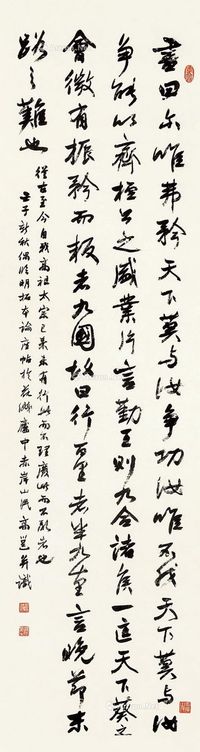 書曰尔唯弗矜天下莫与汝争功汝唯不伐天下莫与汝
争能以齊桓公之盛業片言勤王則九合諸侯一匡天下葵之
會微有振矜而叛者九國故曰行百里者半九十里言晚節末
路之難也
從古至今自我高祖太宗已来未有行此而不理廢此而不乱者也
壬子新秋偶臨明拓本論座帖於廬中赤岸山氓高邕并識